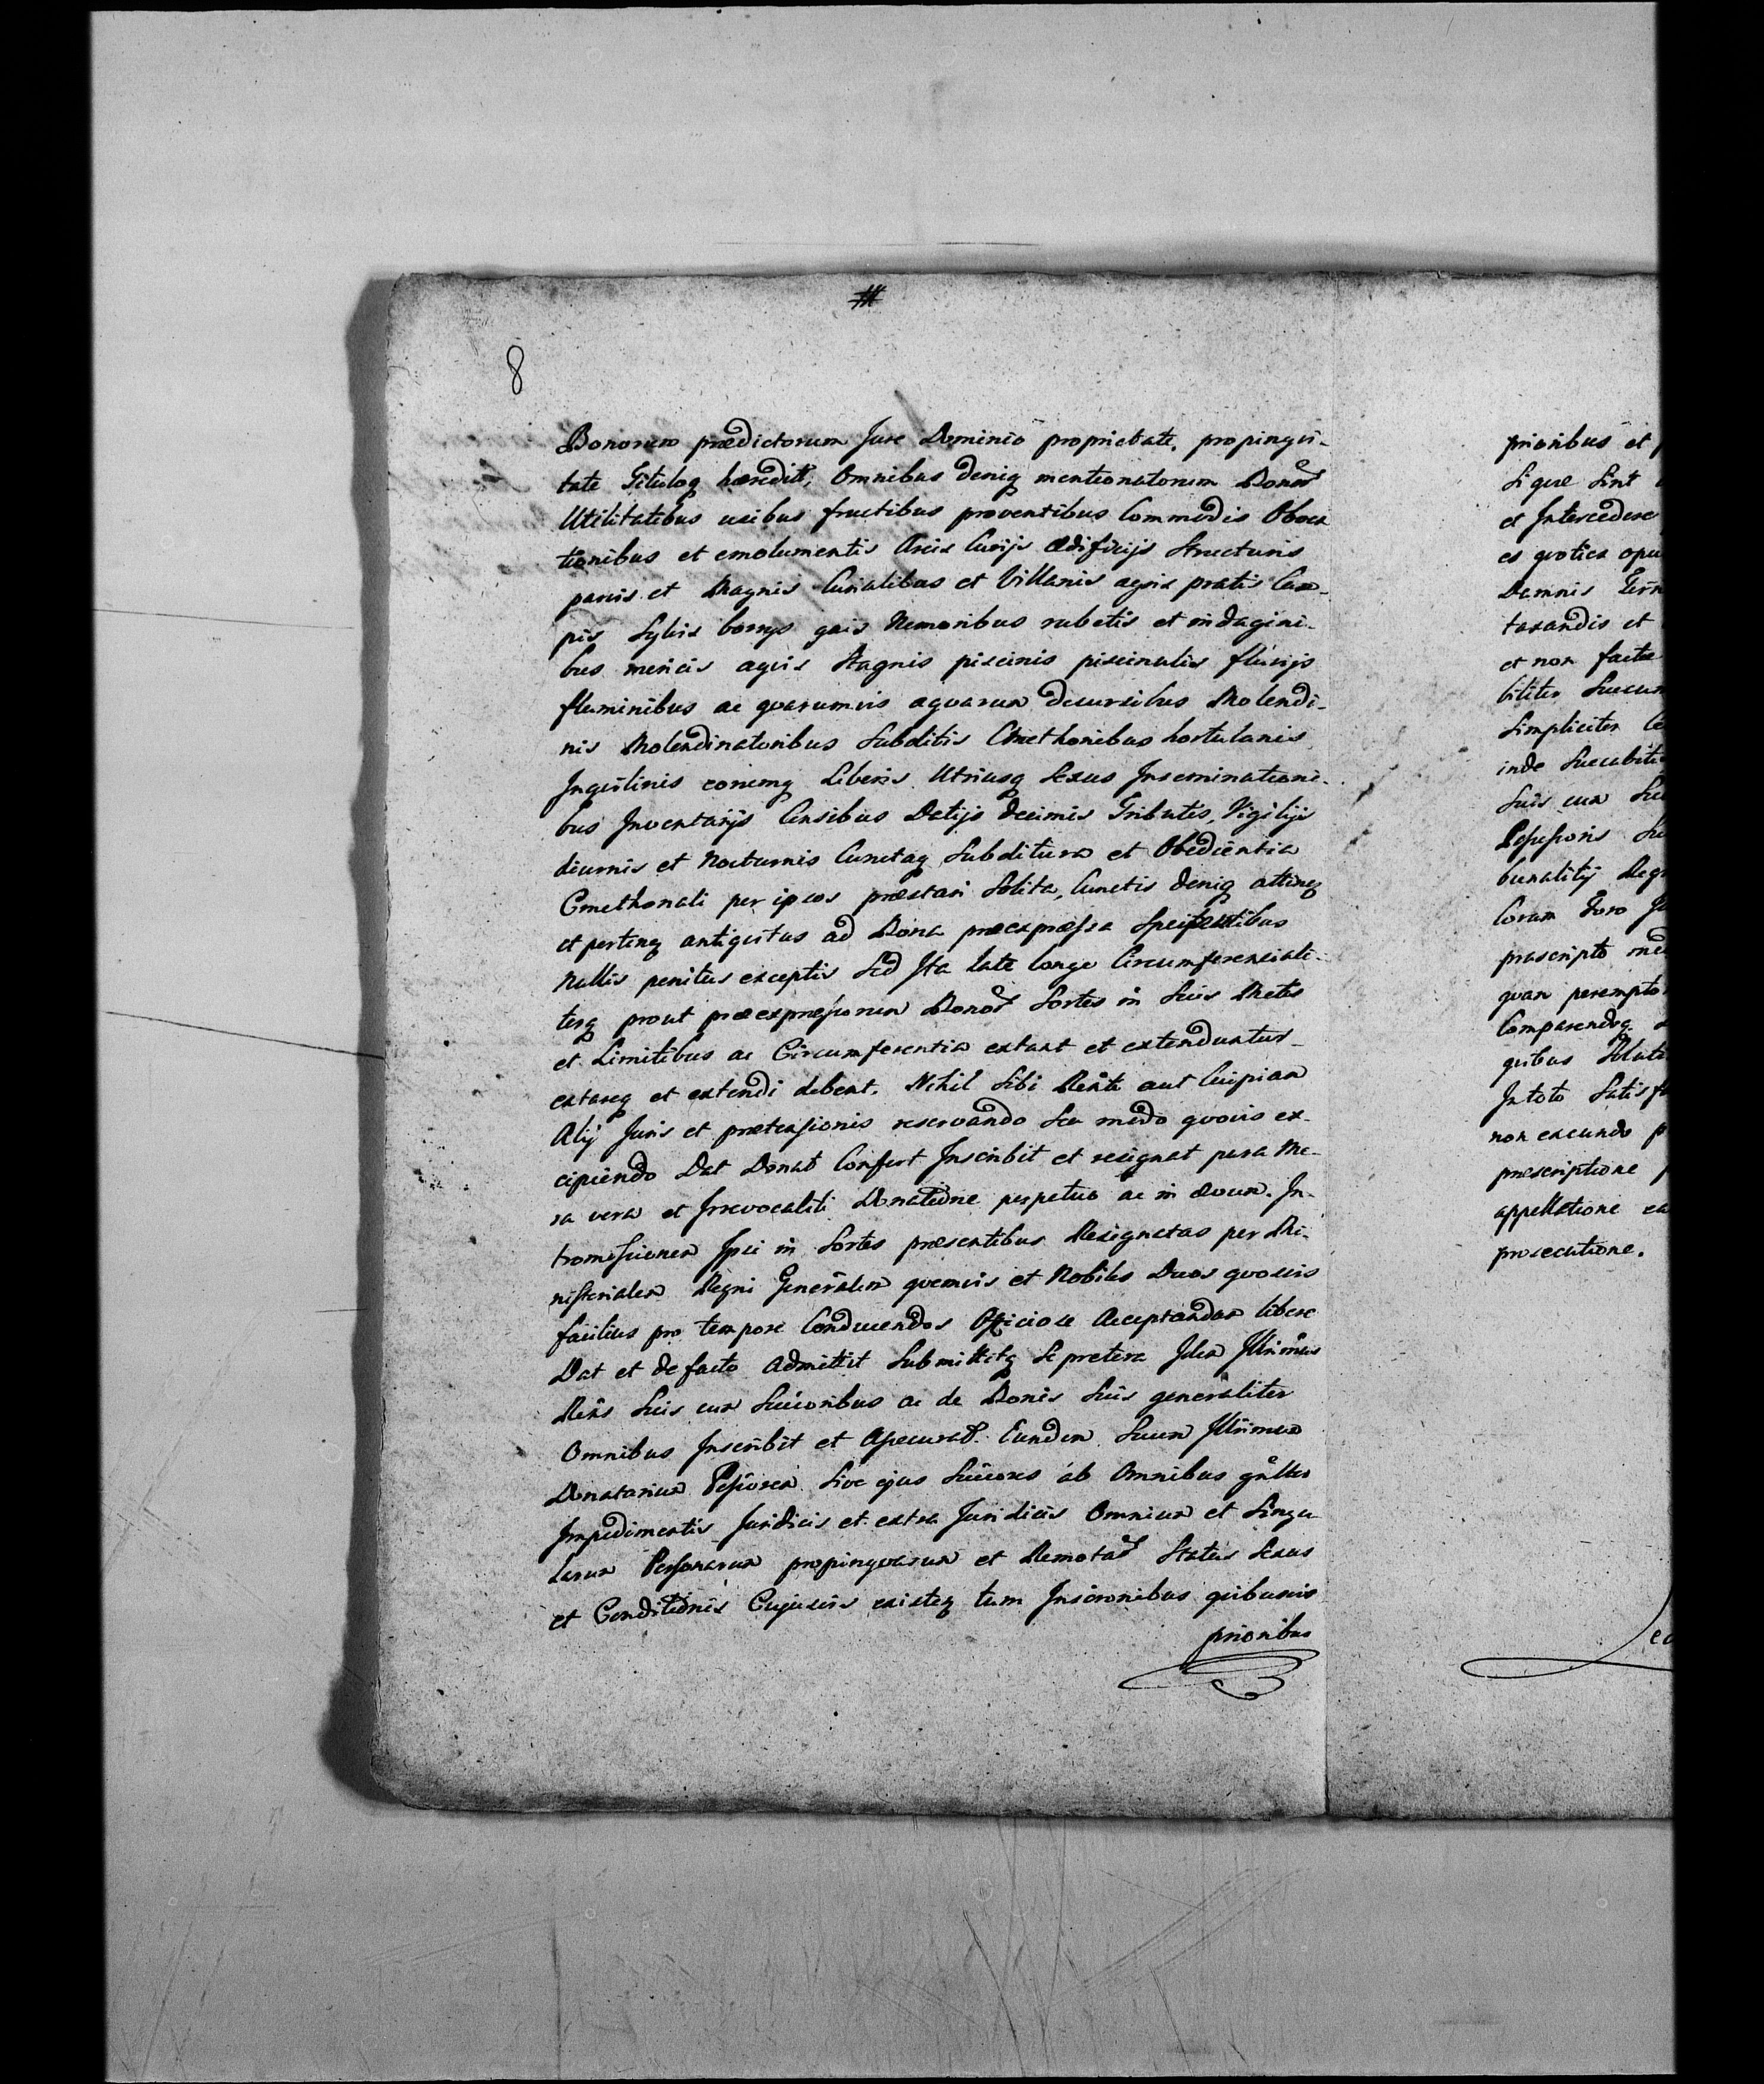 8
Bonorum prædictorum Jure Dominio proprietate, propinqvi-
tate Tituloq hæredit, Omnibus deniq mentionatorum Bonor
Utilitatibus usibus fructibus proventibus Commodis Obven
tionibus et emolumentis Areis Curijs ædificijs Structuris
parvis et Magnis Curialibus et Villanis agris pratis Cam-
pis Sylvis borrys gais Nemoribus rubetis et indagini-
bus mericis aqvis Stagnis piscinis piscinulis fluvijs
fluminibus ac qvarumvis aqvarum decursibus Molendi-
nis Molendinatoribus Subditis Cmethonibus hortulanis
Inqvilinis eorumq Liberis Utriusq Sexus Inseminationi-
bus Inventarijs Censibus Datijs decimis Tributis, Vigilijs
diurnis et Nocturnis Cunctaq Subditura et Obedientia
Cmethonali per ipsos præstari Solita, Cunctis deniq attinen
et pertinen antiqvitus ad Bona præexpressa Spectantibus
Nullis penitus exceptis Sed Ita late longe Circumferenciali-
terq prout præexpressorum Bonor Sortes in Suis Metis
et Limitibus ac Circumferentia extant et extenduntur
extareq et extendi debent. Nihil Sibi Rente aut Cuipiam
Alij Juris et prætensionis reservando Seu modo qvovis ex-
cipiendo Dat Donat Confert Inscribit et resignat pura Me-
ra vera et Irrevocabili Donatione perpetuo ac in ævum. In-
tromissionem Ipsi in Sortes præsentibus Resignatas per Mi-
nisterialem Regni Generalem qvemvis et Nobiles Duos qvovis
facilius pro tempore Conducendos Officiose Acceptandam libere
Dat et de facto Admittit Submittitq Se pretera Idem Illrimus
Rens Suis cum Succoribus ac de Bonis Suis generaliter
Omnibus Inscribit et Assecurat. Eundem Suum Illrimum
Donatarium Pssiorem Sive ejus Succores ab Omnibus gnlter
Impedimentis Juridicis et extra Juridicis Omnium et Singu
larum Personarum propinqvarum et Remotar Status Sexus
et Conditionis Cujusvis existen tum Inscronibus qvibusvis
prioribus
prioribus et
Siqve Sint
et Intercedere
es qvoties opu
Damnis Terr
taxandis et
et non facta
biliter Succum
Simpliciter
inde Succubiti
Suis cum Suc
Pssessoris
bunalitij Reg
Coram Foro
præscripto
qvam perempto
Comparendoq
qvibus Soluti
In toto Satisf
non exeundo
præscriptione
appellatione
prosecutione.